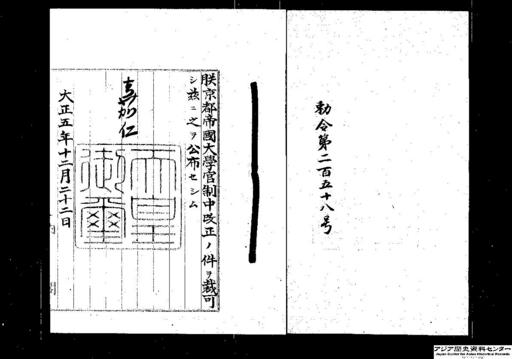 勅令第二百五十八号
朕京都帝國大學官制中改正ノ件ヲ裁可
シ茲ニ之ヲ公布セシム
嘉仁
天皇御璽
大正五年十二月二十二日
内閣
アジア歴史資料センター
Japan Center for Asian Historical Records